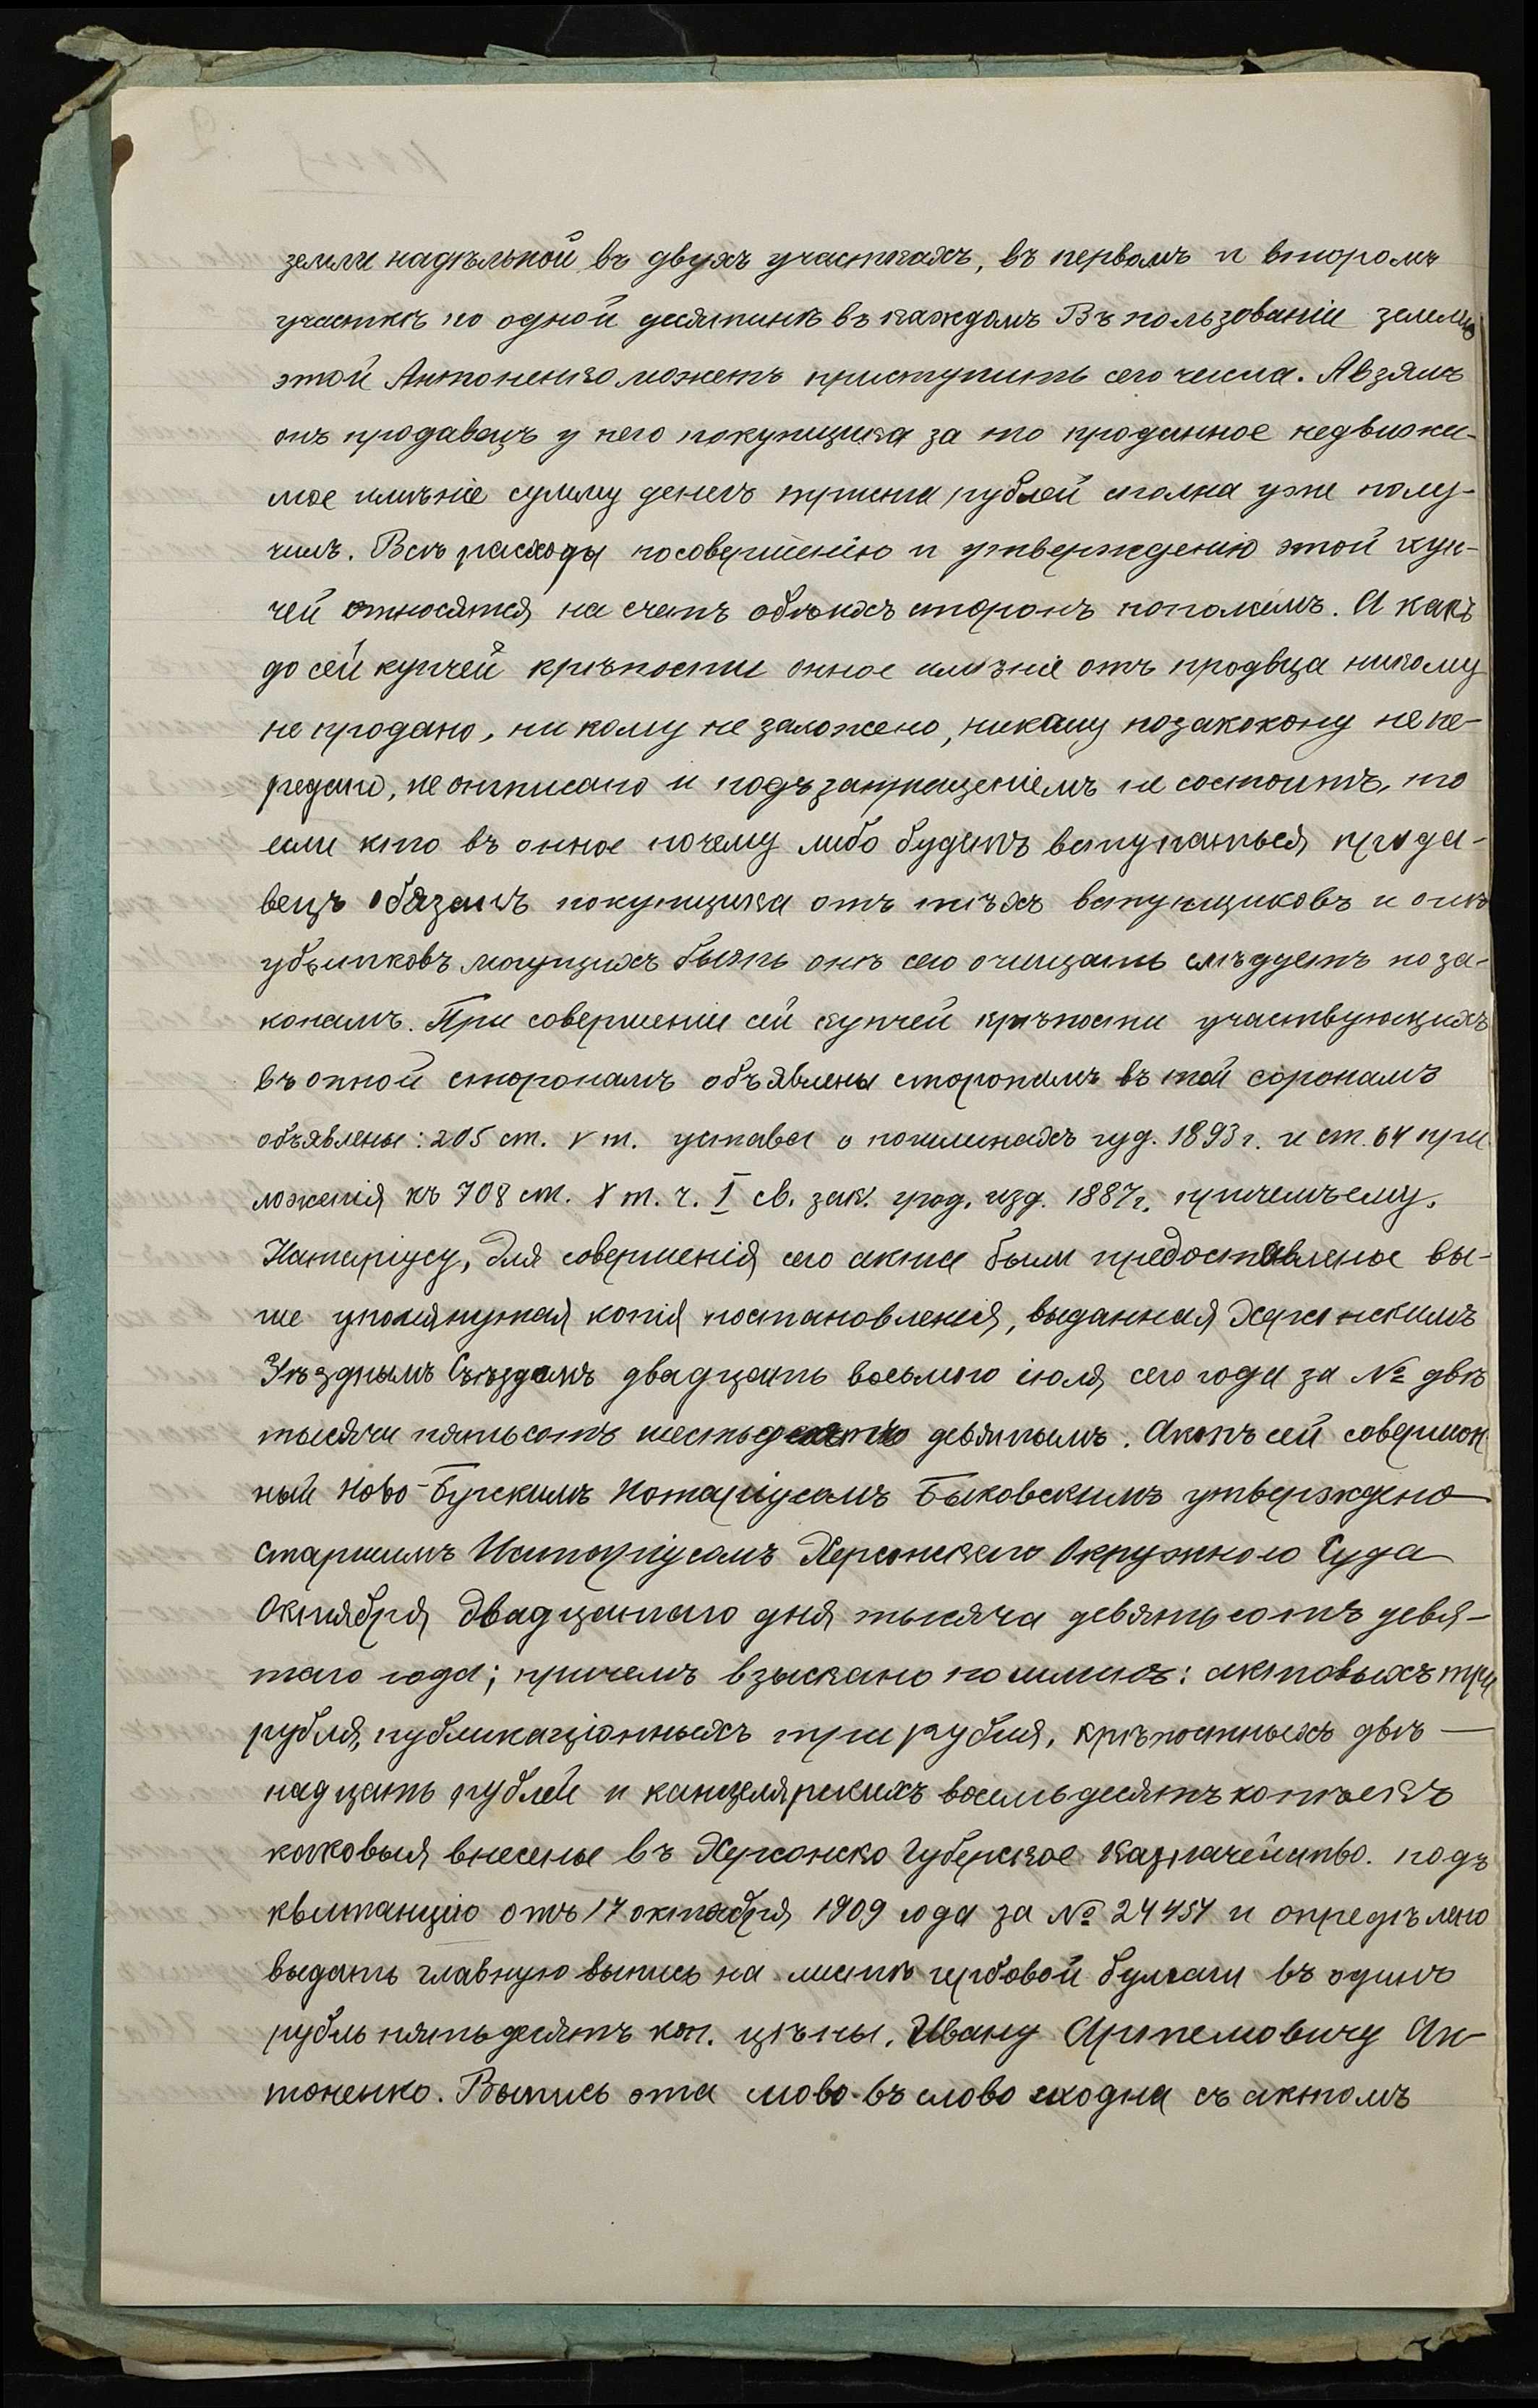 земли надѣльной въ двухъ участкахъ, въ первомъ и второмъ
участкѣ по одной десятинѣ въ каждомъ Въ пользованіи землею
этой Антоненко можетъ приступить сего числа. А взялъ
онъ продавецъ у него покупщика за то проданное недвижи-
мое имѣніе сумму денегъ триста рублей сполна уже полу-
чилъ. Всѣ расходы по совершенію и утвержденію этой куп-
чей относятся на счетъ обѣихъ сторонъ пополамъ. А какъ
до сей купчей крѣпости онное имѣніе отъ продвца никому
не продано, ни кому не заложено, никому по закокону не пе-
редано, не отписано и подъ запрещеніемъ не состоитъ, то
если кто въ онное почему либо будетъ вступаться прода-
вецъ обязанъ покупщика отъ тѣхъ вступщиковъ и отъ
убытковъ могущихъ быть отъ сего очищать слѣдуетъ по за-
конамъ. При совершеніи сей купчей крѣпости участвующихъ
въ онной сторонамъ объявлены сторонамъ въ той соронамъ
объявлены: 205 ст. V т. устава о пошлинахъ изд. 1893 г. и ст. 64 при
ложенія къ 708 ст. X т. ч. I св. зак. град. изд. 1887 г. причемъ ему,
Натаріусу, для совершенія сего акта были предоставлены вы-
ше упомянутая копія постановленія, выданная Херсонскимъ
Уѣзднымъ Съѣздомъ двадцать восьмого іюля сего года за № двѣ
тысячи пятьсотъ шестьдесятъ девятымъ. Актъ сей совершон
ный Ново-Бугскимъ Нотаріусомъ Быковскимъ утверждено
Старшимъ Натаріусомъ Херсонскаго Окружного Суда
Октября двадцатаго дня тысяча девятьсотъ девя-
таго года; причемъ взыскано пошлинъ: актовыхъ три
рубля, публикаціонныхъ три рубля, крѣпостныхъ двѣ —
надцать рублей и канцелярскихъ восемьдесятъ копѣекъ
каковыя внесены въ Херсонско Губерское Казначейство. подъ
квитанцію отъ 17 октября 1909 года за № 24454 и опредѣлено
выдать главную выпись на листѣ гербовой бумаги въ одинъ
рубль пятьдесятъ коп. цѣны, Ивану Артемовичу Ан-
тоненко. Выпись эта слово въ слово сходна съ актомъ